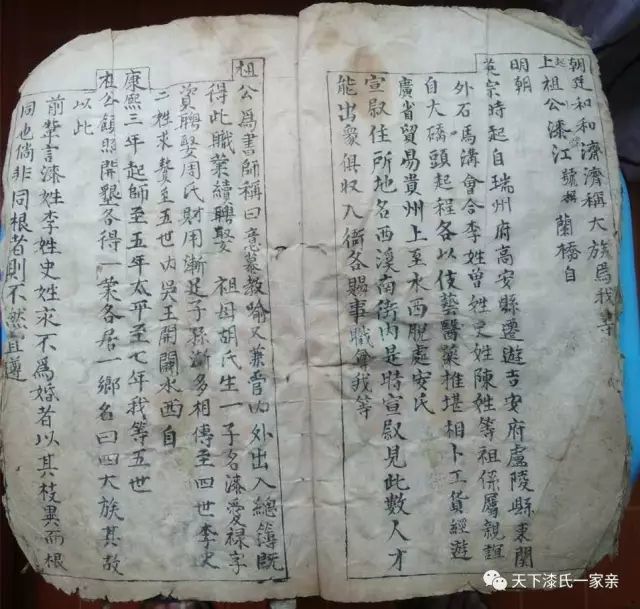 朝廷和和濟濟稱大族焉我等
上起祖公漆江號稱蘭橋自
明朝
英宗時起自瑞州府高安縣遷遊吉安府盧陵縣東關
外石馬溝會合李姓曾姓史姓陳姓等祖係屬親誼
自大橋頭起程各以伎藝醫藥推堪相卜工貨經遊
廣省貿易貴州上至水西脫處安氏
宣尉住所地名西溪南街內是時宣尉見此數人才
能出眾俱収入衙各賜事職算我等
祖公為書師稱曰意慕教喻又兼管內外出入總簿既
得此職業續聘娶 祖母胡氏生一子名漆愛祿字
資聘娶周氏財用漸足子孫漸多相傳至四世李史
二姓求贅至五世內吳王開闢水西自
康熙三年起師至五年太平至七年我等五世
祖公領照開墾各得一業各居一鄉名曰四大族其故
以此
前輩言漆姓李姓史姓永不為婚者以其枝異而根
同也倘非同根者則不然宜遵
天下漆氏一家亲